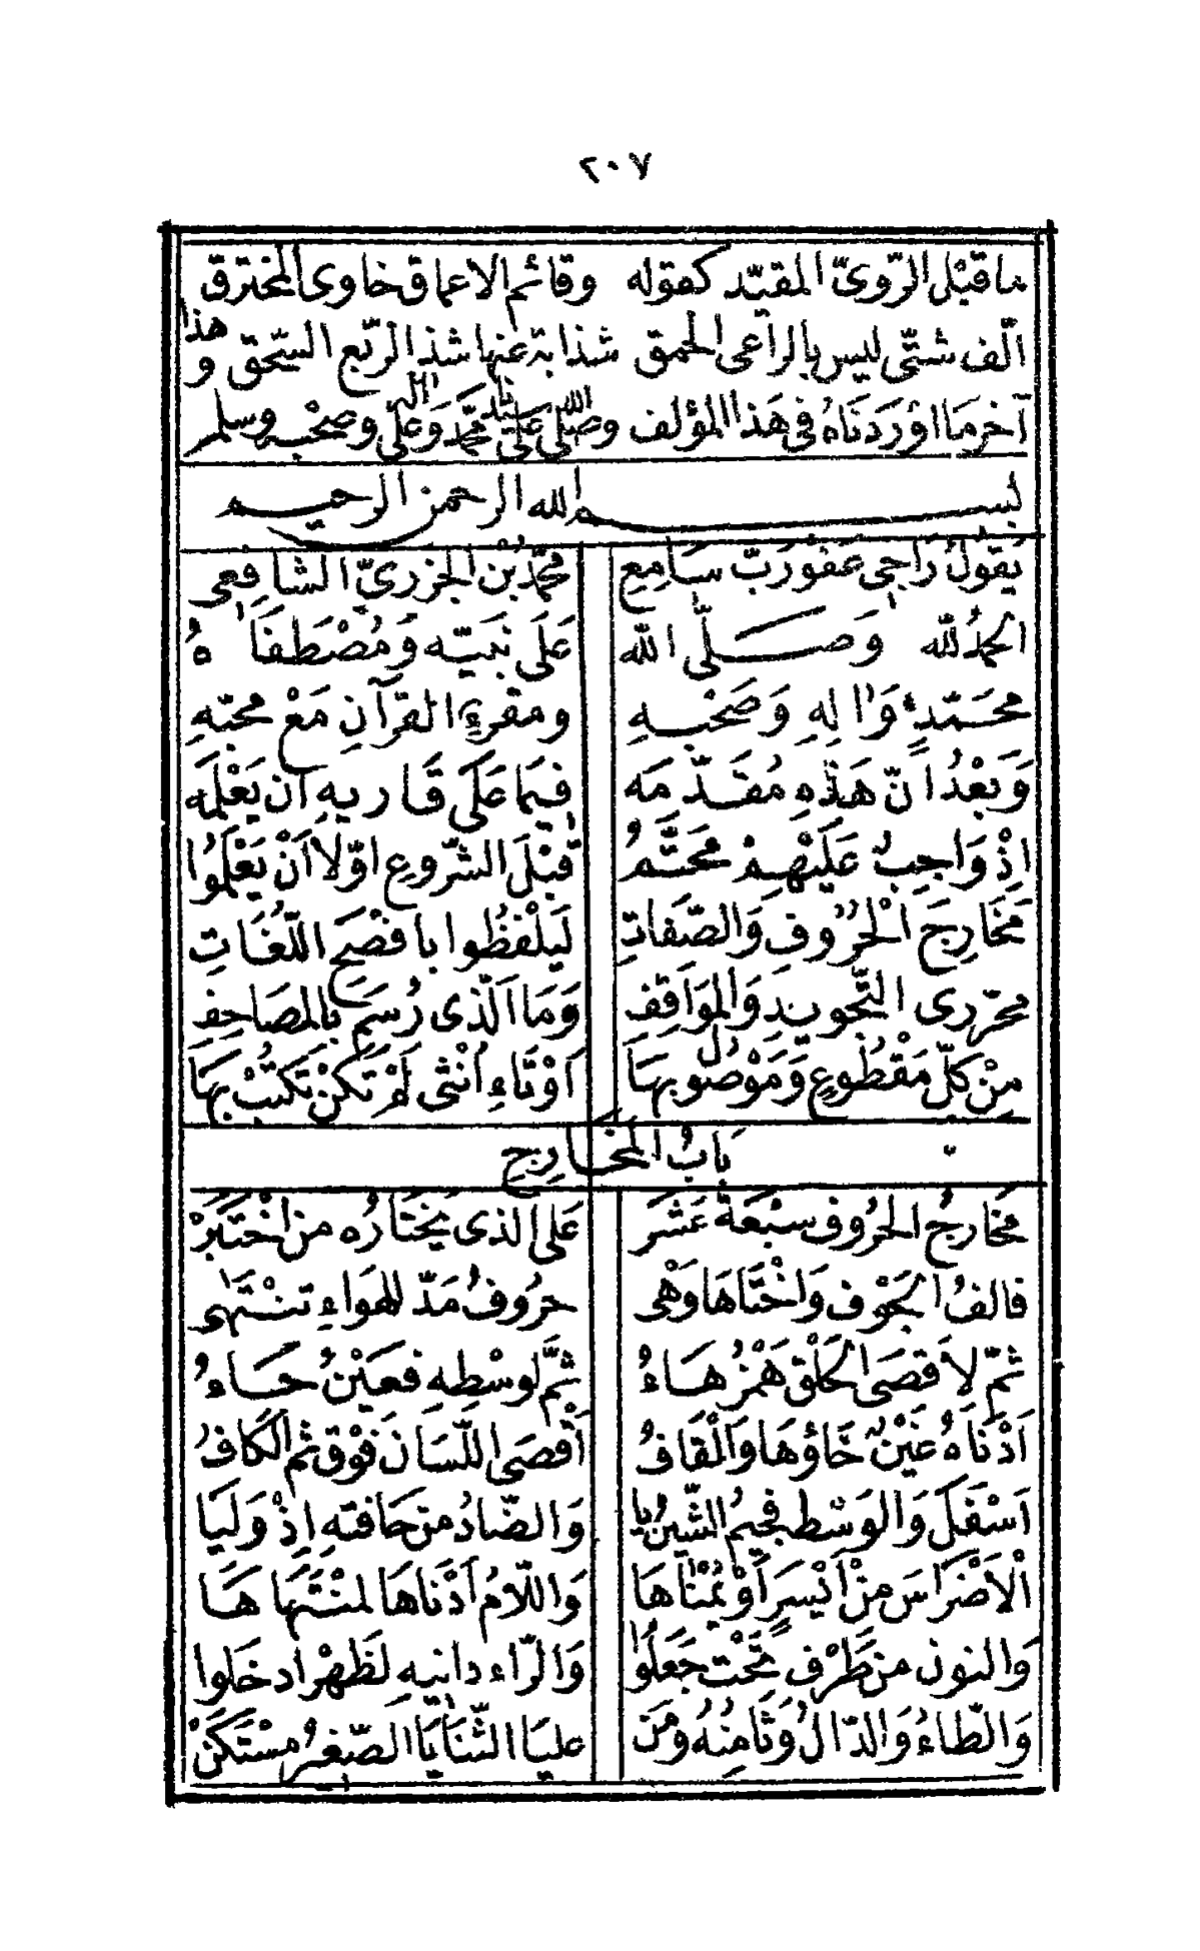 ٢٠٧
ما قبل الرّوىّ المقيّد كقوله وقائم الاعماق خاوى المخترق
الّف شتّى ليس بالراعى الحمق شذابة عنها شذ الربّع السّحق وهذا
آخر ما اوْرَدْنَاهُ فى هَذا المؤلف وصلى الله على سيدنا محمّد وَعلى اله وصحْبه وسلم
بسم الله الرحمن الرحيم
يَقوُلُ رَاجِى عَفْوِ رَبّ سَامِعِ محمّدُ بْن الجزرىّ الشافِعى
الحمدُ لله وَصَلَّى الله عَلَى نَبيّه وَمُصْطَفَاهُ
محَمّدٍ وَاٰلِهِ وَصَحْبِهِ ومقرءِ القرآنِ مَعْ محبّهِ
وَبَعْدُ انّ هَذِهِ مُقَدّمَه فيمَا عَلَى قَاريهِ اَن يَعْلَمَه
اذْ وَاجِبٌ عَلَيْهِمْ مُحَتَّمُ قَبْلَ الشّروعِ اوّلاً اَنْ يَعْلَمُوا
مَخَارِجَ الْحُرُوفِ وَالصّفَاتِ لَيَلْفظُوا بافصَحِ اللّغَاتِ
محرّرى التَّجويدِ وَالموَاقِفِ وَمَا الَّذى رُسِمَ بالمصَاحِفِ
مِنْ كلّ مَقْطُوعٍ وَمَوْصُولٍ بهَا اَوْتَاءِ اُنْثى لَمْ تَكنْ تكتُبْ بِهَا
بَابُ المخَارِجِ
مخَارجُ الحرُوف سبْعَةَ عَشَرَ عَلى الذى يَخْتَارُه من اخْتَبَرْ
فالفُ الجَوْف وَاخْتَاهَا وَهْى حرُوفُ مَدّ للهَوَاءِ تنْتَهى
ثمّ لاَقصَى الحَلْق هَمْزُ هَاءُ ثمَّ لوسْطِهِ فعَيْنُ حَاءُ
اَدْنَاهُ غَيْنٌ خَاؤهَا وَالْقَافُ اَقْصَى اللّسَان فَوْق ثم الكَافُ
اَسْفَلَ وَالوَسْط فجِيمُ الشّينُ يا وَالضّادُ من حَافتِهِ اِذْ وَلَيَا
الْاَضْرَاسَ منْ اَيْسَرَ اَوْ يُمْنَاهَا وَاللّامُ اَدْنَاهَا لمنْتَهَاهَا
وَالنون من طَرْفِ تحْت جَعَلُوا وَالرّاء دانيهِ لظَهْر ادخَلوا
وَالطّاءُ وَالدّالُ وَتَامِنْهُ وَمن عليَا الثّنَايَا الصّغرُ مسْتَكَنْ